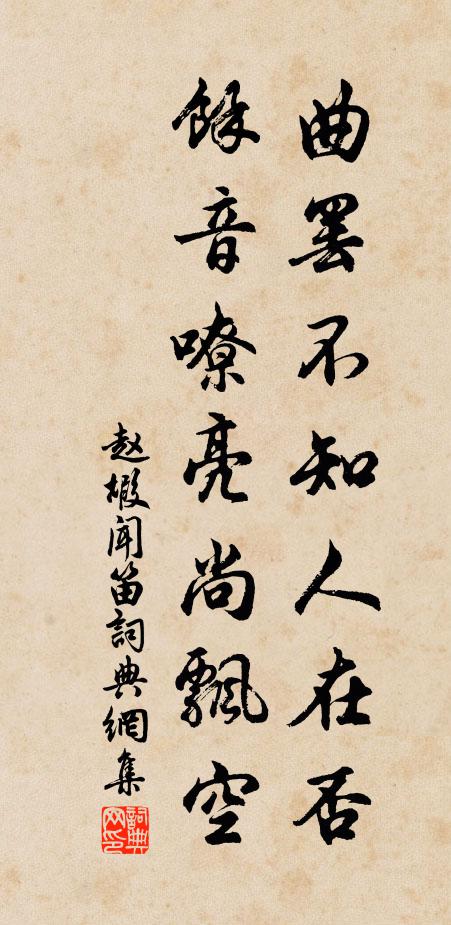 曲罢不知人在否
餘音嘹亮尚飄空
赵嘏闻笛詞典網集
詞典网印